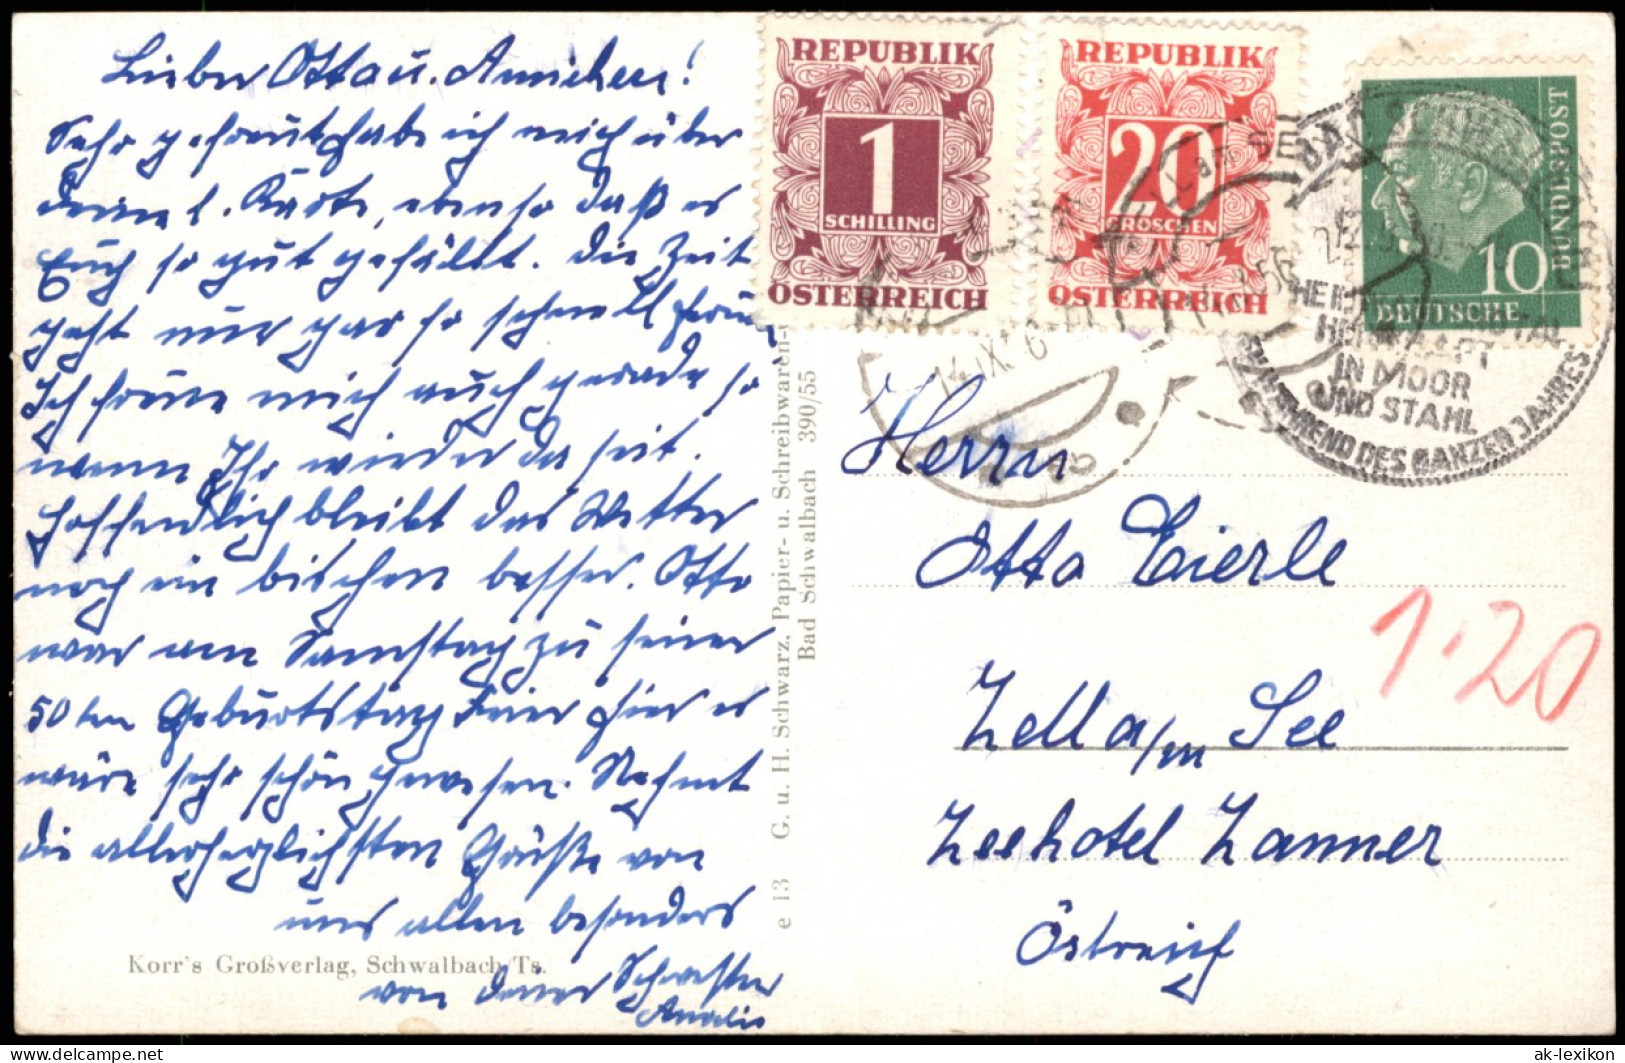 Lieber Otto u. Annichen!
Sehr gefreut habe ich mich über
Deine l. Karte, ebenso daß es
Euch so gut gefällt. Die Zeit
geht nur gar so schnell herum
Ich freue mich auch gerade so
wenn Ihr wieder da seit.
Hoffendlich bleibt das Wetter
noch ein bischen besser. Otto
war am Samstag zu seiner
50ten Geburtstag Feier hier es
wäre sehr schön gewesen. Nehmt
die allerherzlichsten Grüße von
uns allen besonders
von Deiner Schwester
Annelie
Korr's Großverlag, Schwalbach/Ts.
e 13 G. u. H. Schwarz, Papier- u. Schreibwaren-
Bad Schwalbach 390/55
REPUBLIK
1
SCHILLING
ÖSTERREICH
REPUBLIK
20
GROSCHEN
ÖSTERREICH
BUNDESPOST
10
DEUTSCHE
BAD
HEILT
IN MOOR
UND STAHL
WÄHREND DES GANZEN JAHRES
14. IX.
Herrn
Otto Eierle
Zell a/m See
Seehotel Zanner
Östreich
1·20
ak-lexikon
delcampe.net